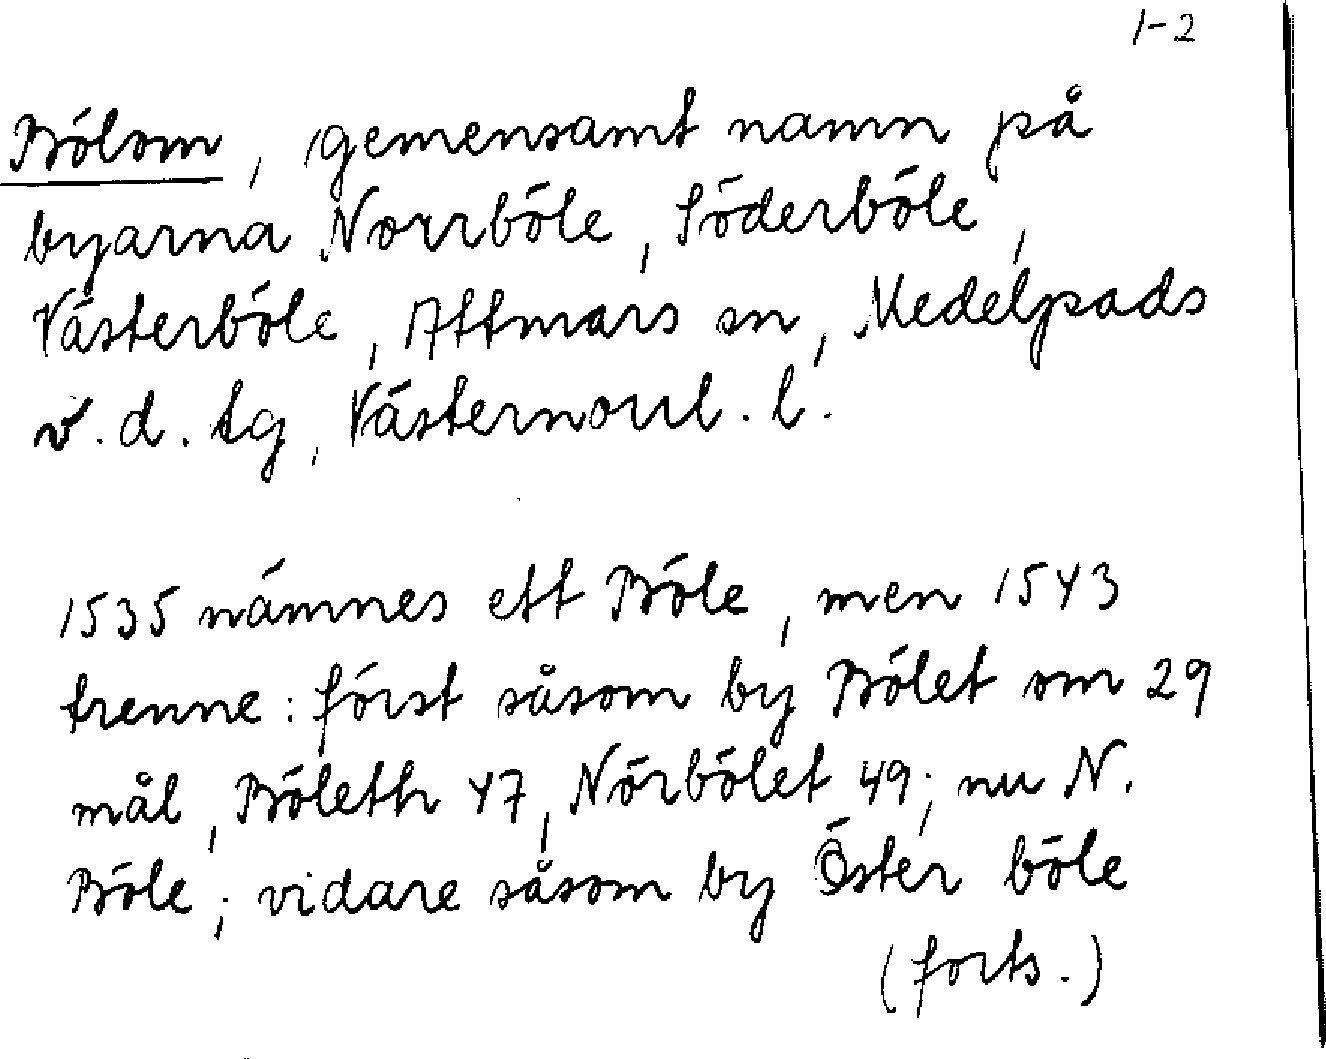 1-2
Bölom, gemensamt namn på
byarna Norrböle, Söderböle,
Västerböle, Attmars sn, Medelpads
v. d. tg, Västernorrl. l.
1535 nämnes ett Böle, men 1543
trenne: först såsom by Bölet om 29
mål, Böleth 47, Nörbölet 49; nu N.
Böle; vidare såsom by Öster böle
(forts.)